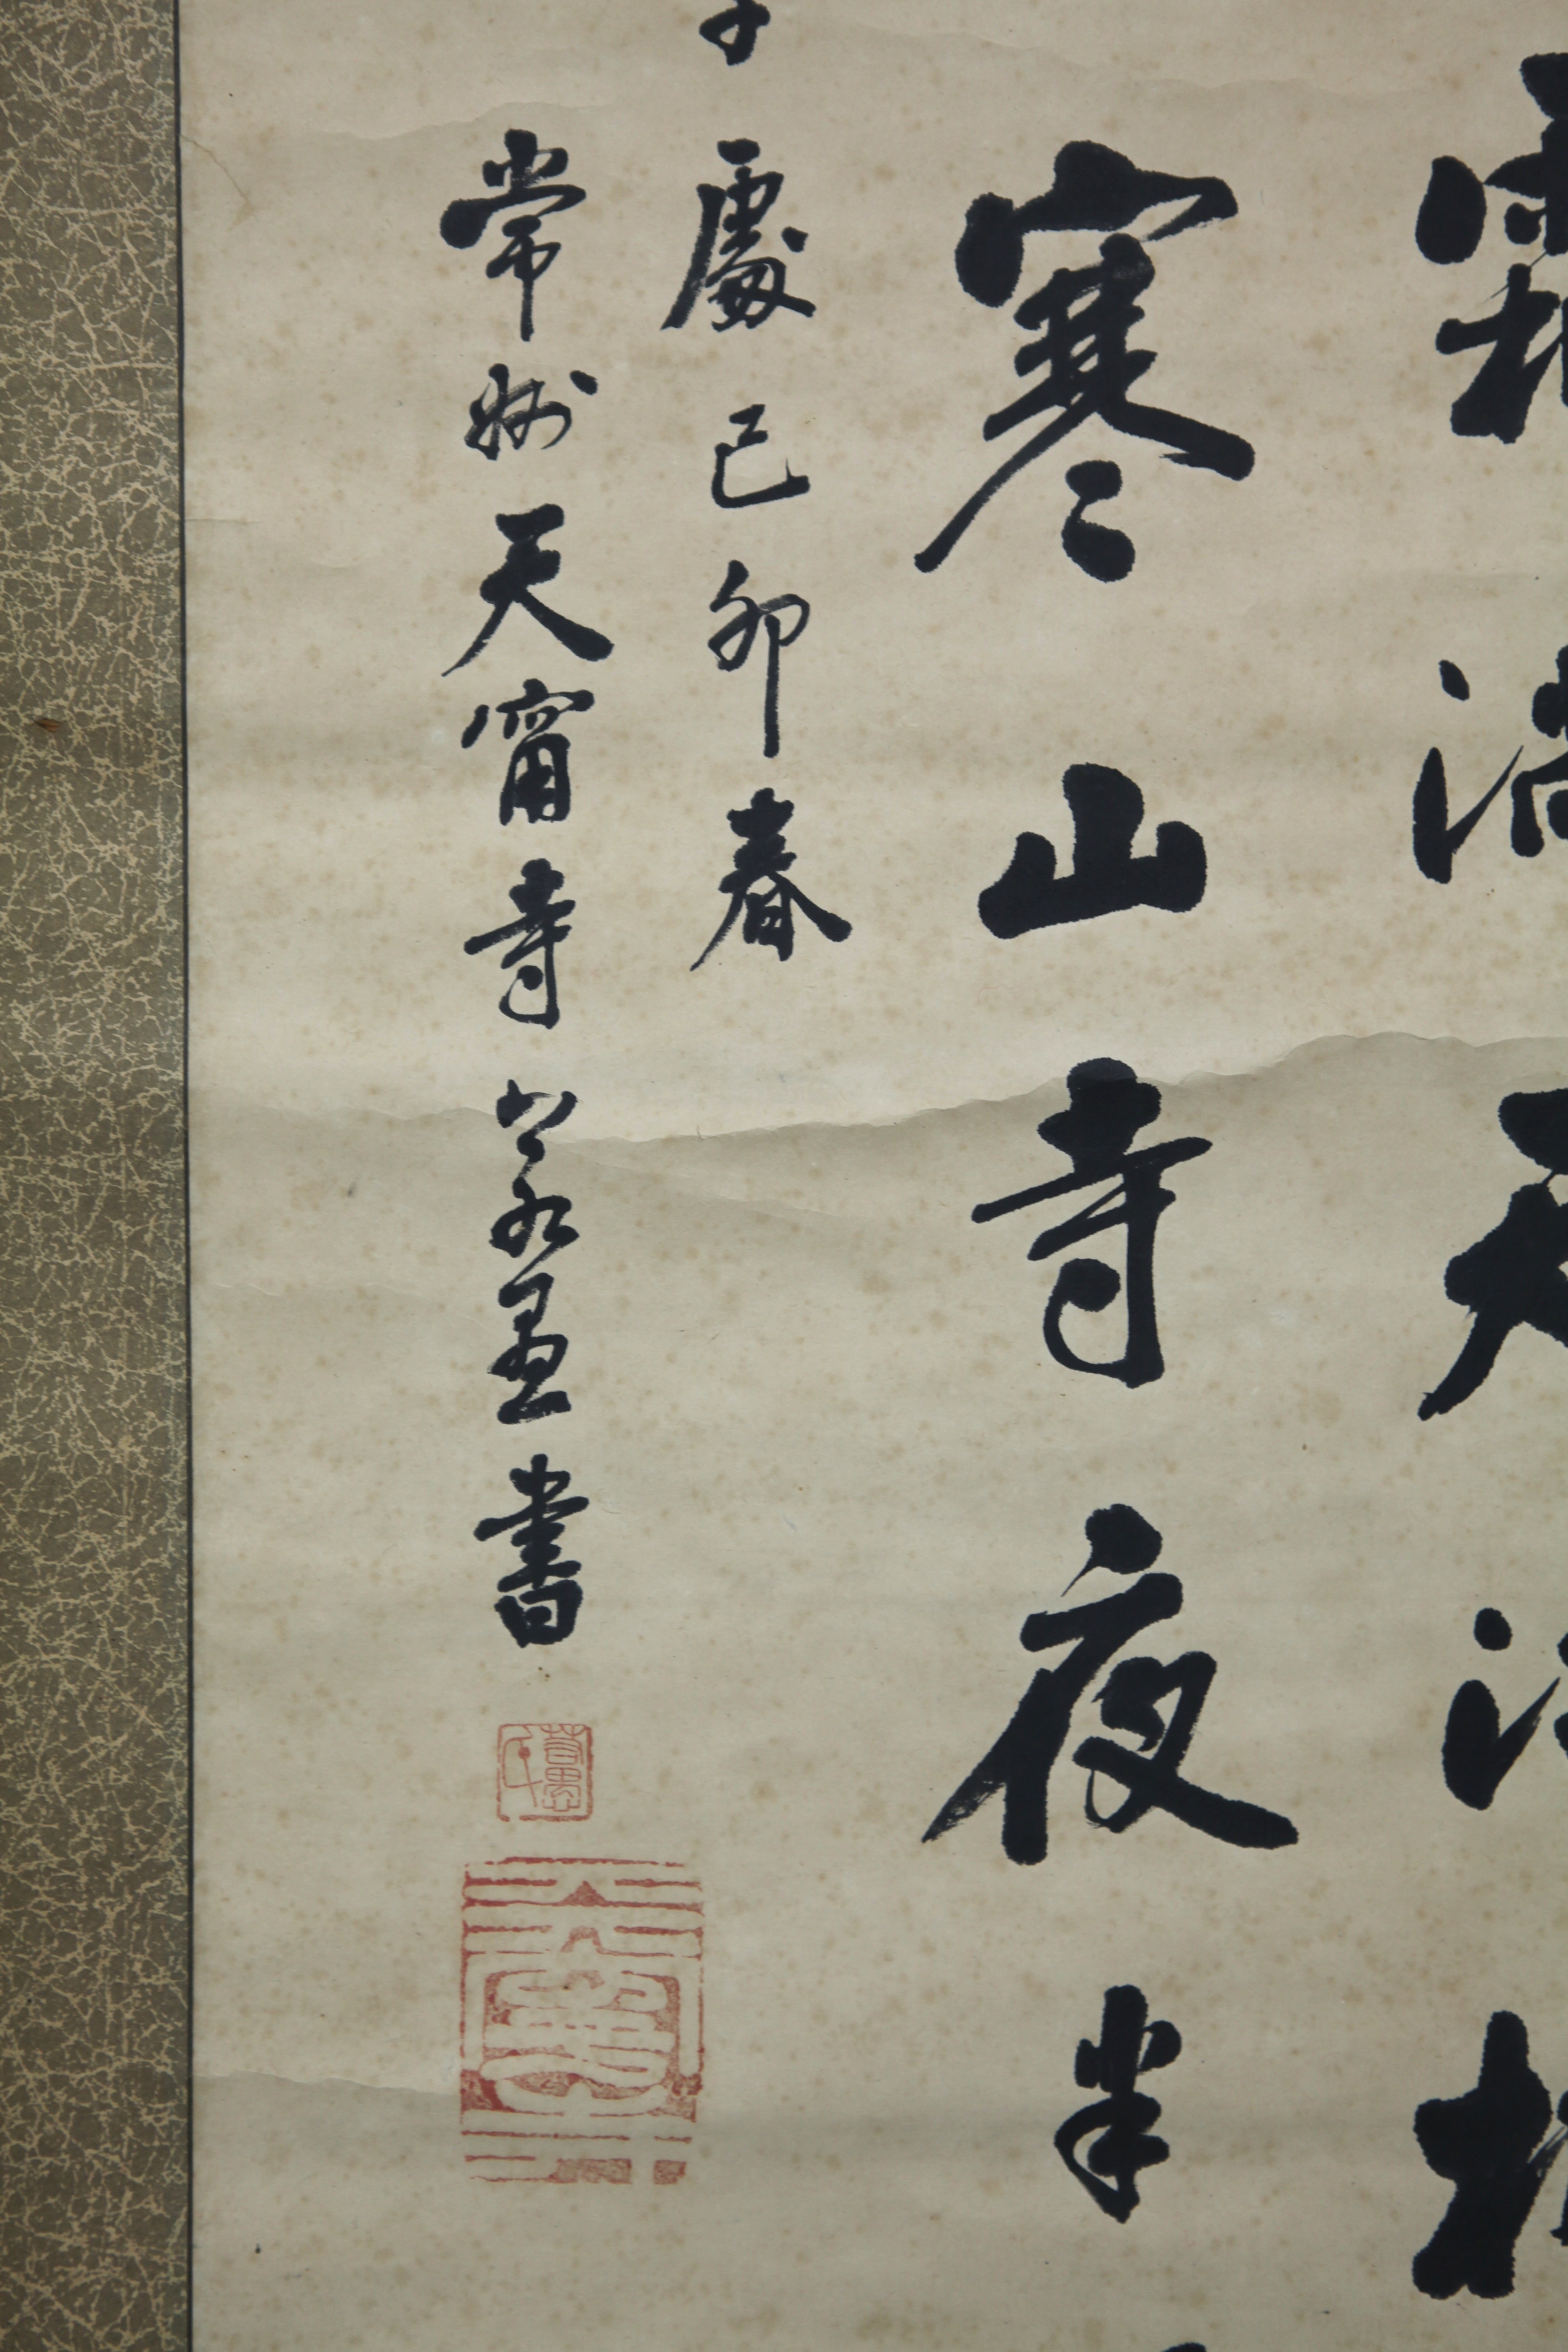 霜滿天江楓
寒山寺夜半
處己卯春
常州天甯寺
書